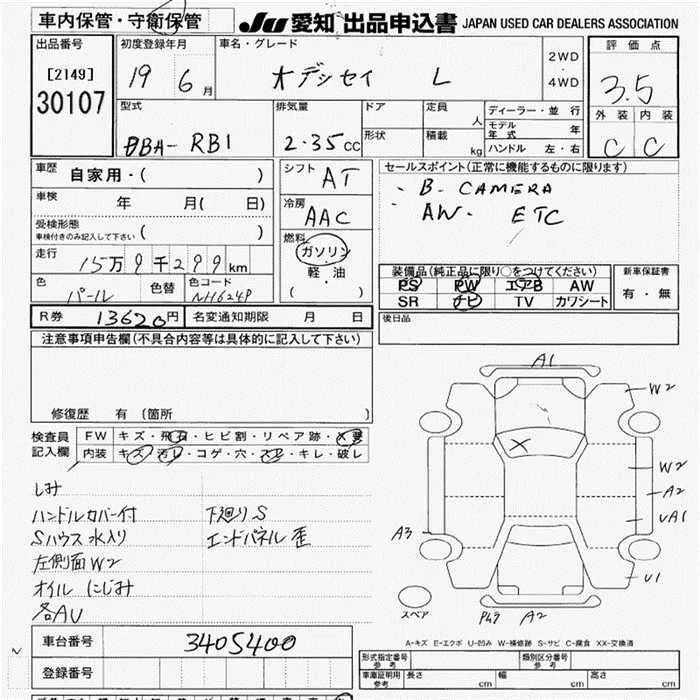 車内保管・守衛保管
JU 愛知 出品申込書 JAPAN USED CAR DEALERS ASSOCIATION
出品番号
[2149]
30107
初度登録年月
19 6 月
車名・グレード
オデッセイ L
2WD
・
4WD
評価点
3.5
外装 内装
C C
型式
DBA-RB1
排気量
2.35cc
ドア
形状
定員
人
積載
kg
ディーラー・並行
モデル年式 年
ハンドル 左・右
車歴
自家用・( )
車検
年 月( 日)
受検形態
車検付きのみ記入して下さい ( )
走行
15万9千299km
色
パール
色替
色コード
NH624P
シフト
AT
冷房
AAC
燃料
ガソリン
・
軽・油
( )
セールスポイント(正常に機能するものに限ります)
・B-CAMERA
・AW・ ETC
装備品(純正品に限り○をつけてください)
PS PW エアB AW
SR ナビ TV カワシート
新車保証書
有・無
R券 13620円 名変通知期限 月 日
後日品
注意事項申告欄(不具合内容等は具体的に記入して下さい)
修復歴 有 (箇所 )
検査員
記入欄
FW キズ・飛石・ヒビ割・リペア跡・X要
内装 キズ・汚レ・コゲ・穴・スレ・キレ・破レ
しみ
ハンドルカバー付 下廻りS
Sハウス水入り エンドパネル歪
左側面W2
オイルにじみ
各AU
A1
W2
X
W2
A2
UA1
A3
U1
スペア
A2
A-キズ E-エクボ U-凹み W-補修跡 S-サビ C-腐食 XX-交換済
車台番号 3405400
登録番号
形式指定番号
参考
類別区分番号
参考
車庫証明用
参考
長さ cm 幅 cm 高さ cm